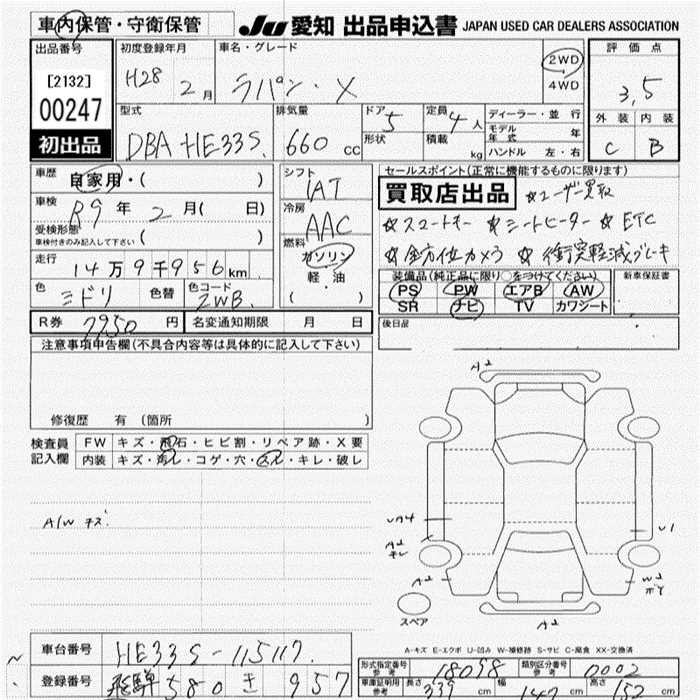 車内保管・守衛保管 JU 愛知 出品申込書 JAPAN USED CAR DEALERS ASSOCIATION
出品番号 初度登録年月 車名・グレード 2WD 評価点
[2132] H28 2月 ラパン・X 4WD 3.5
00247 型式 排気量 ドア 5 定員 4人 ディーラー・並行 外装 内装
初出品 DBA HE33S 660cc 形状 積載 kg モデル年式 年 C B
ハンドル 左・右
車歴 自家用・( ) シフト セールスポイント(正常に機能するものに限ります)
車検 R9年2月( 日) IAT 買取店出品 ☆ユーザー買取
受検形態 冷房 ☆スマートキー ☆シートヒーター ☆ETC
車検付きのみ記入して下さい ( ) AAC ☆全方位カメラ ☆衝突軽減ブレーキ
走行 14万9千956km 燃料 ガソリン 装備品(純正品に限り○をつけてください) 新車保証書
色 ミドリ 色替 色コード ZWB 軽・油 PS PW エアB AW
( ) SR ナビ TV カワシート
R券 7950円 名変通知期限 月 日 後日品
注意事項申告欄(不具合内容等は具体的に記入して下さい)
A2
修復歴 有 (箇所 )
検査員 FW キズ・飛石・ヒビ割・リペア跡・X要
記入欄 内装 キズ・汚レ・コゲ・穴・スレ・キレ・破レ
A/W キズ
UA4
U1
A2
キレ
A2
W2
スペア
A2
A-キズ E-エクボ U-凹み W-補修跡 S-サビ C-腐食 XX-交換済
車台番号 HE33S-115117 形式指定番号 参考 18098 類別区分番号 参考 0002
登録番号 飛騨 580 き 957 車庫証明用 参考 長さ 339cm 幅 147cm 高さ 152cm